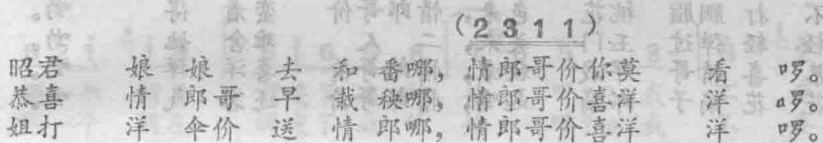 (2 3 1 1)
昭君 娘 娘 去 和 番哪, 情郎哥价你莫 看 啰。
恭喜 情 郎哥 早 栽 秧哪, 情郎哥价喜洋 洋 啰。
姐打 洋 伞价 送 情 郎哪, 情郎哥价喜洋 洋 啰。